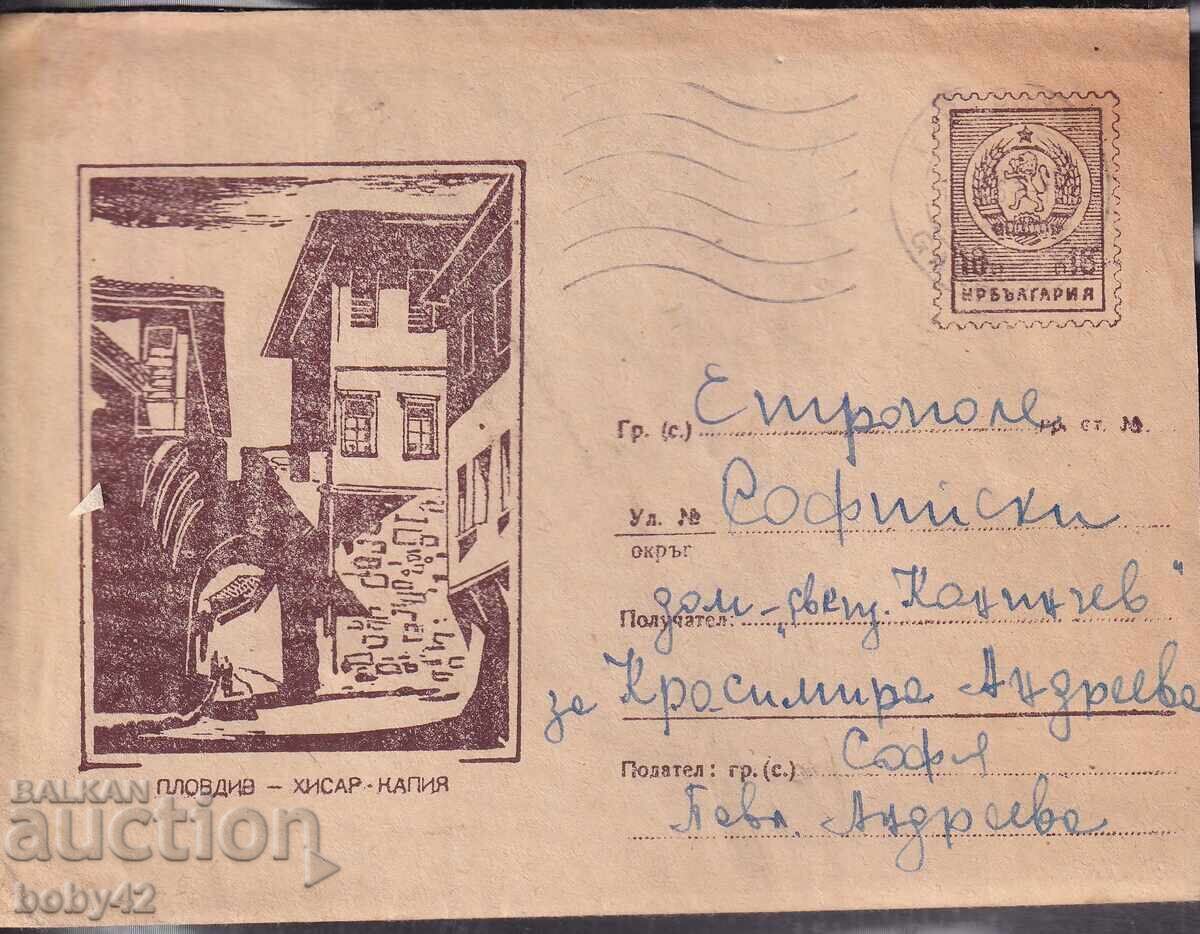 НРБЪЛГАРИЯ
Гр. (с.) Етрополе гр. ст. №
Ул. № Софийски
окръг
Получател: дом "Каницчев"
за Красимира Андреева
Податeл: гр. (с.) София
Андреева
ПЛОВДИВ – ХИСАР-КАПИЯ
BALKAN
auction
boby42